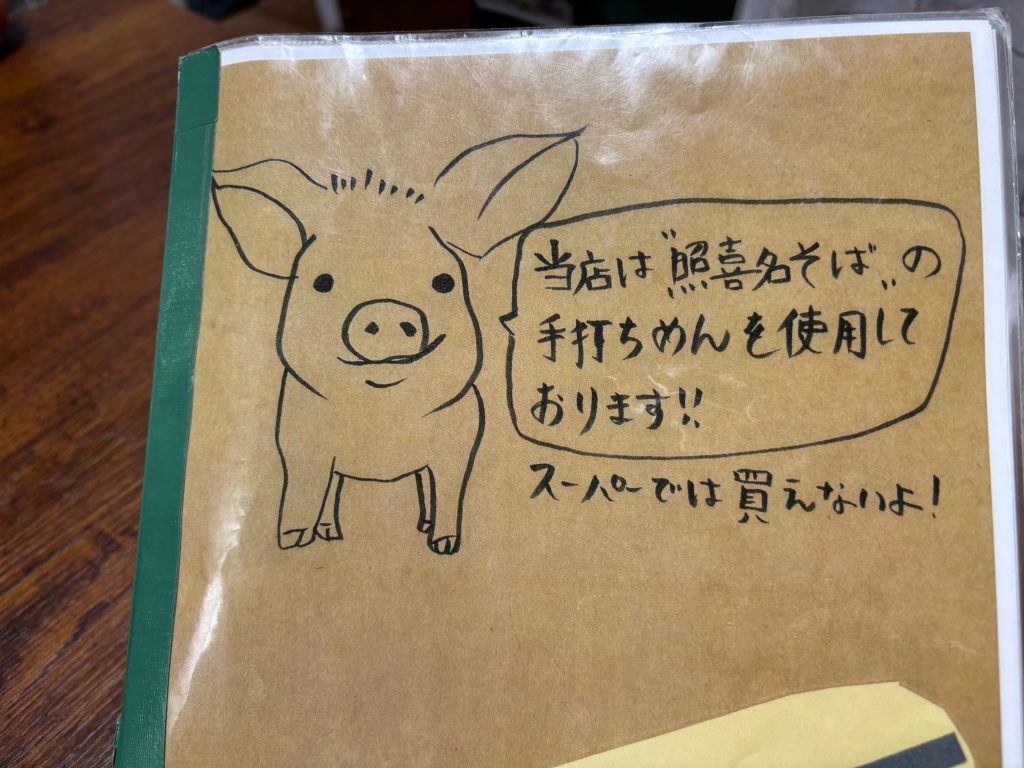 当店は〝照喜名そば〟の
手打ちめんを使用して
おります!!
スーパーでは買えないよ!